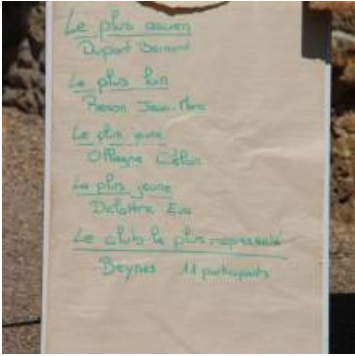 Le plus ancien
Duport Bernard
Le plus loin
Jean-Marc
Le plus jeune
Le plus jeune
Delattre Eva
Le club le plus représenté
Beynes 11 participants